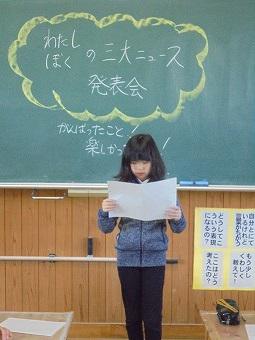 わたし
ぼく の三大ニュース
発表会
がんばったこと！
楽しかっ
！
自分とにて
いるけれど
どうしてこ
ういう表現
になるの？
もう少し
くわしく
教えて！
ここはどう
考えたの？